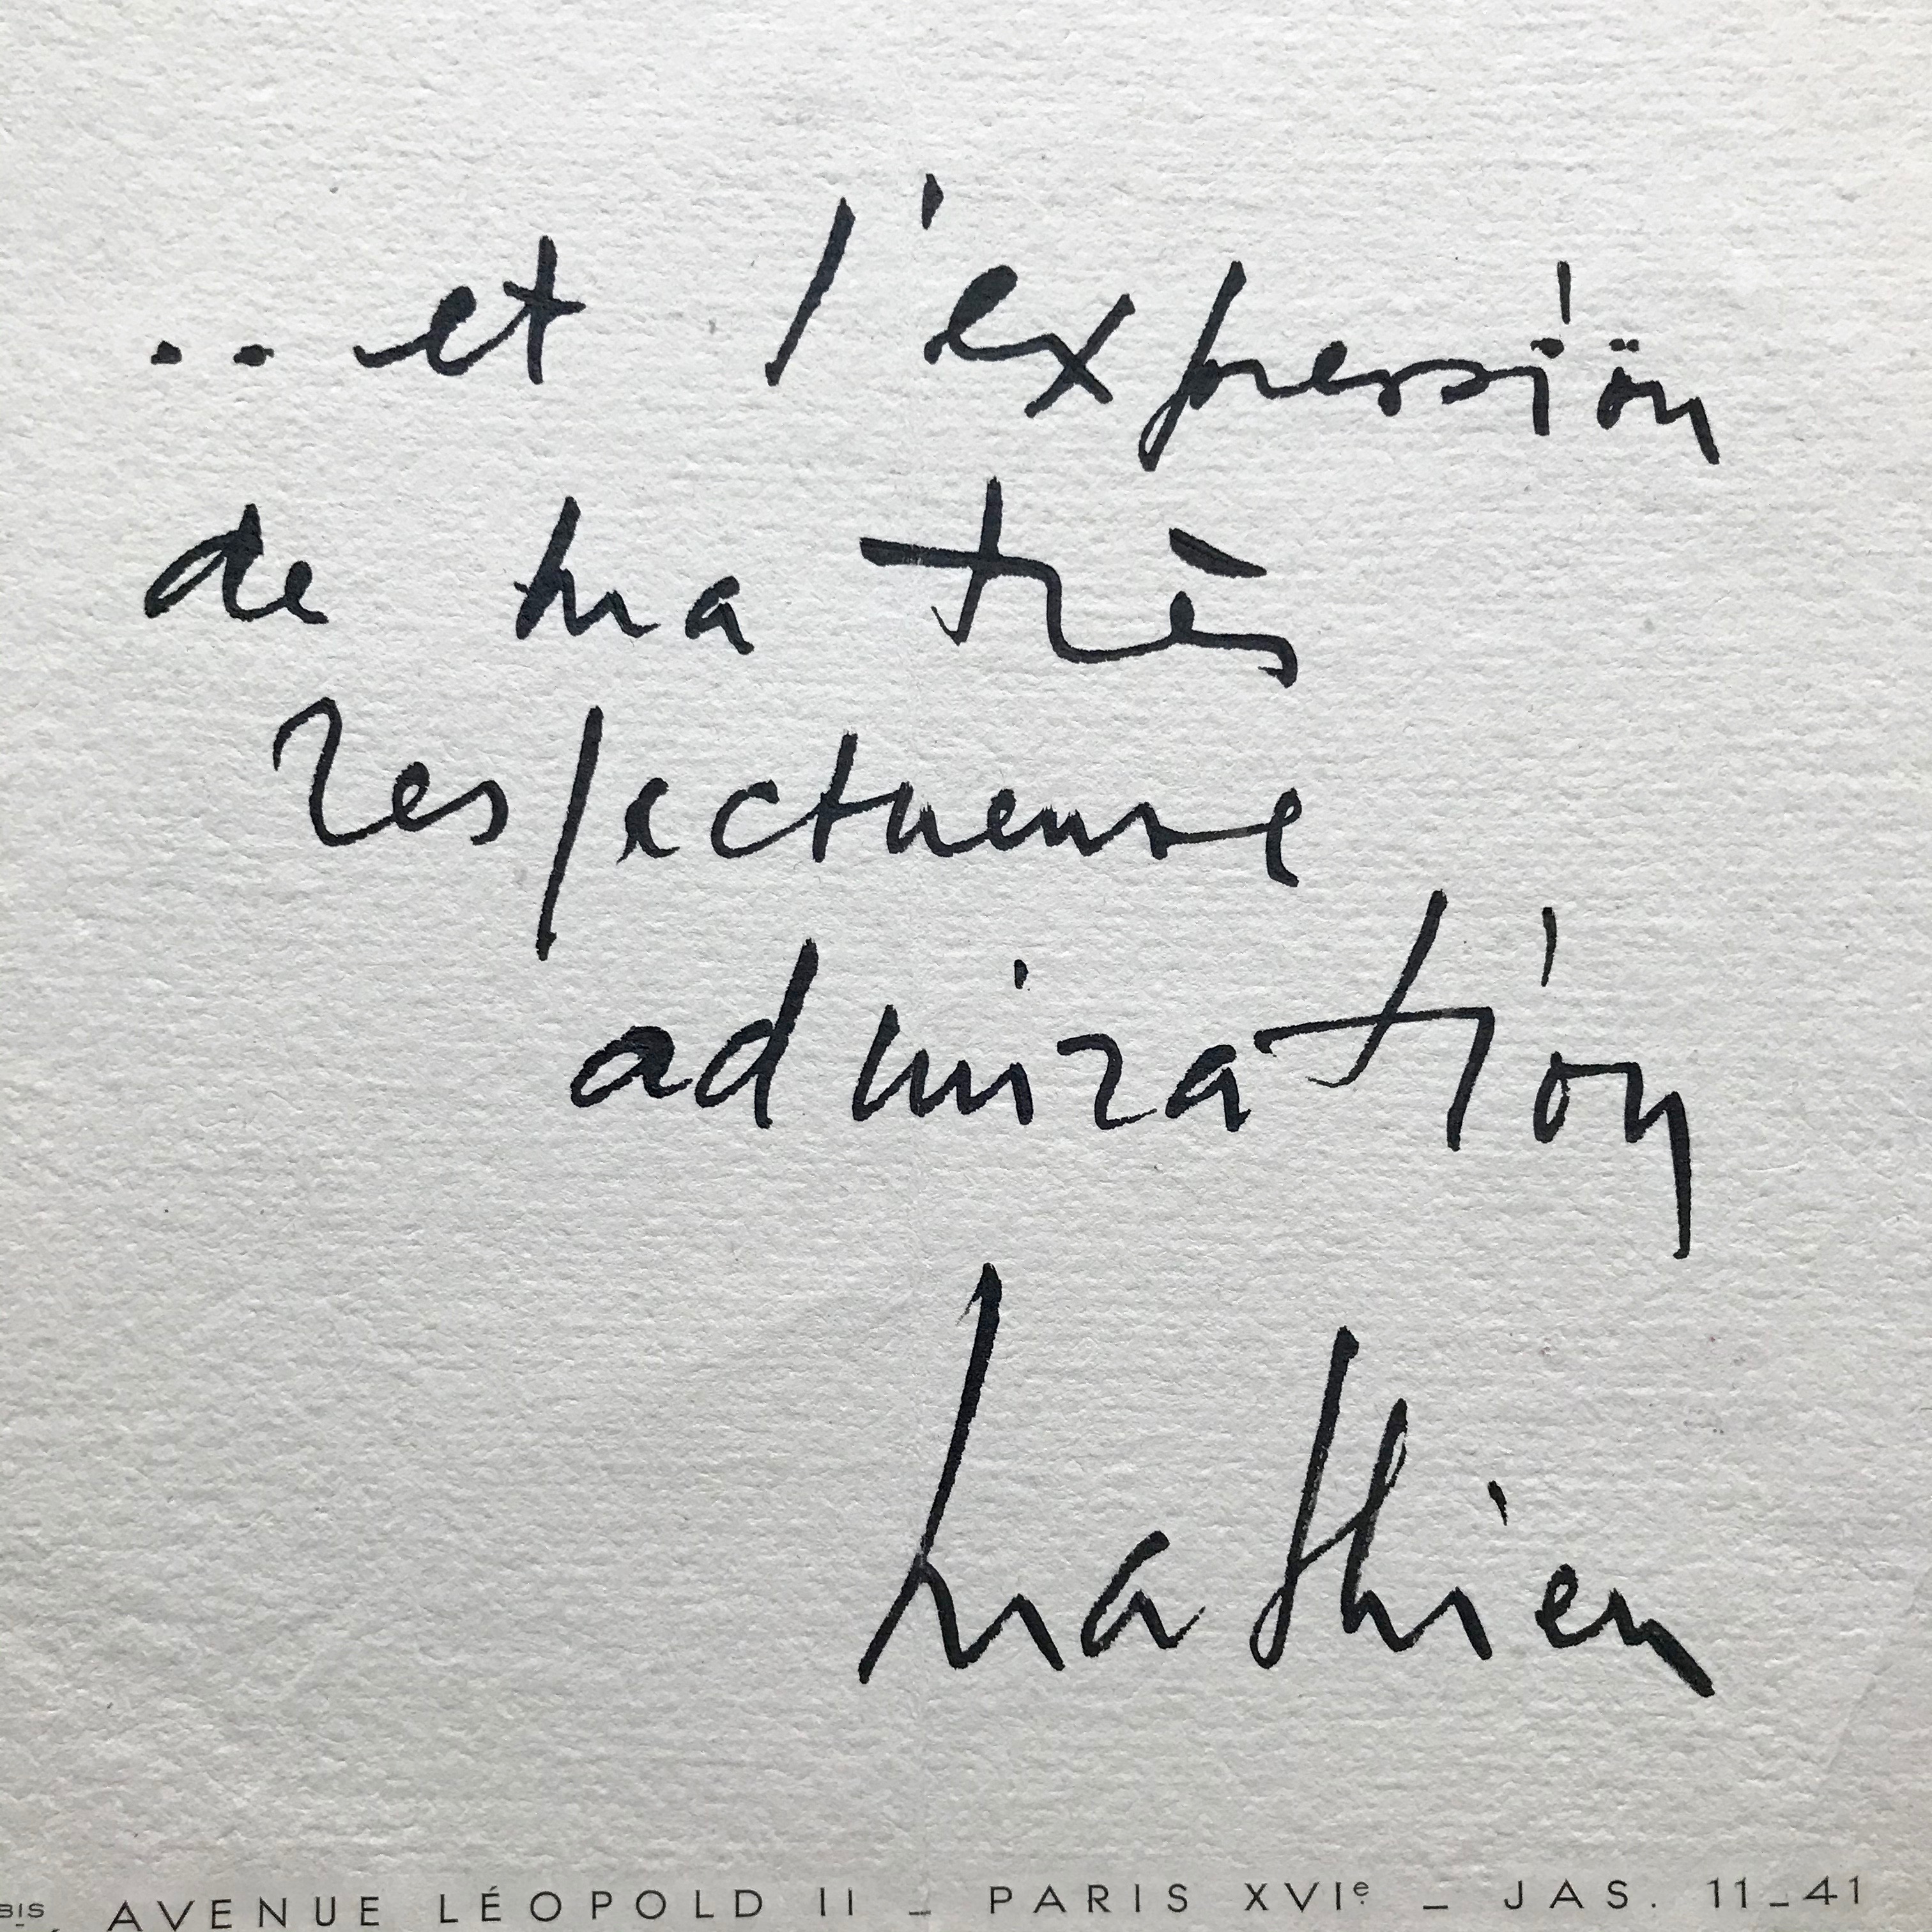 .. et l'expression
de ma très
respectueuse
admiration
Mathieu
BIS AVENUE LÉOPOLD II _ PARIS XVIe _ JAS. 11_41